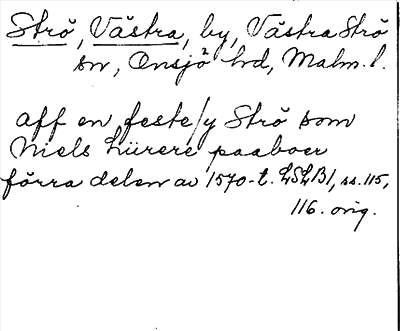 Strö, Västra, by, Västra Strö
sn, Onsjö hd, Malm. l.
aff en feste/y Strö som
Niels Hiirere paaboer
förra delen av 1570-t. LSLB1, ss. 115,
116. orig.